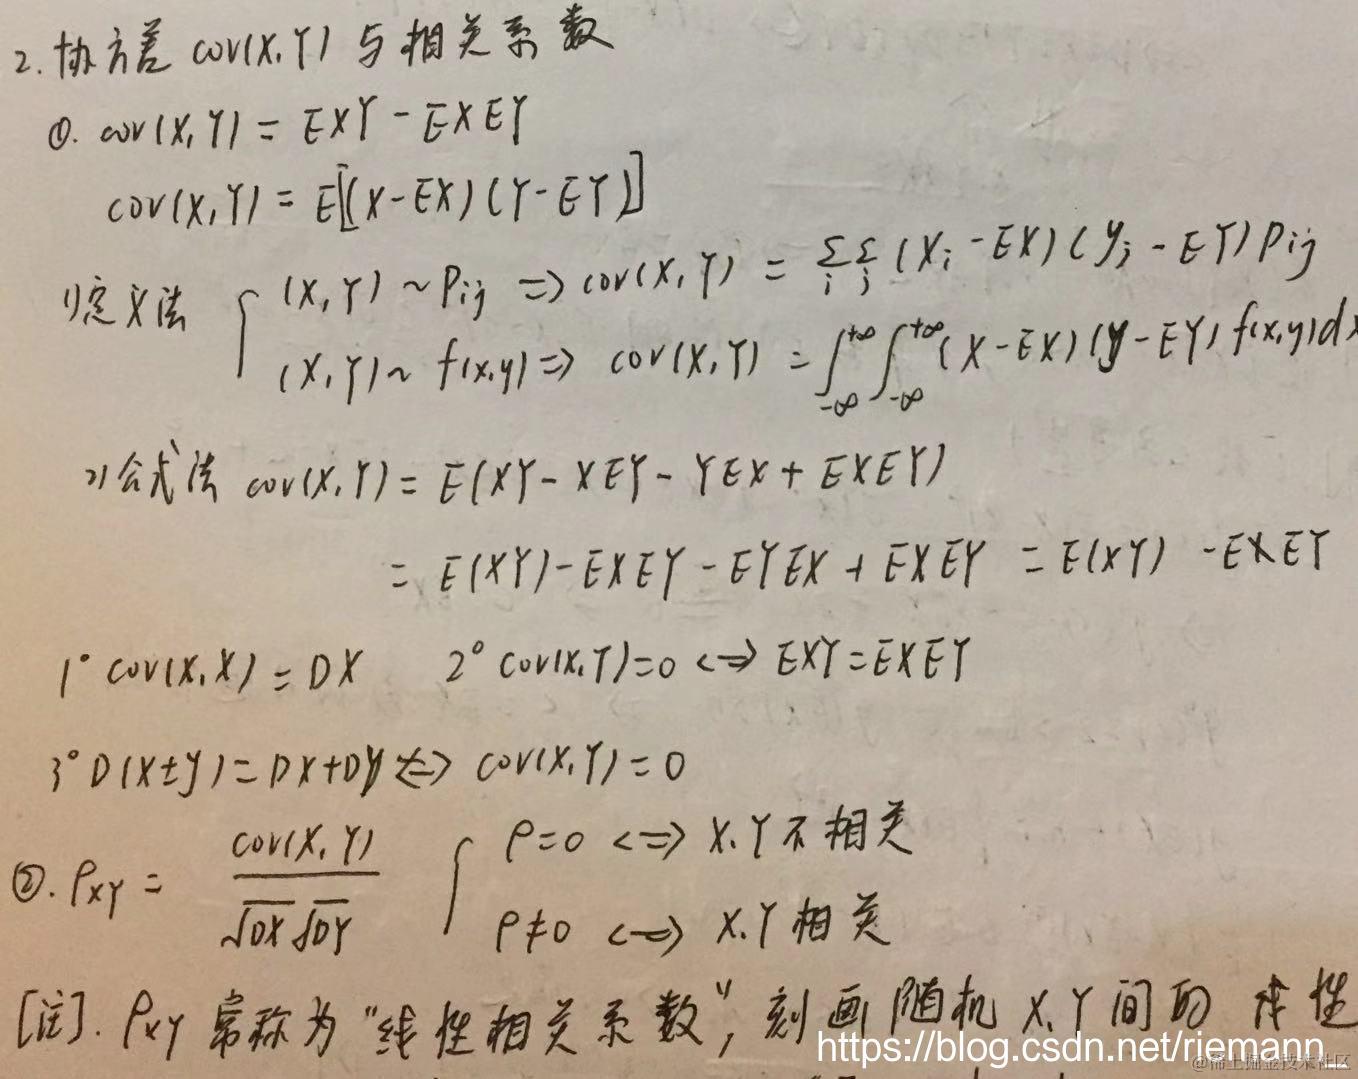 2. 协方差 cov(X,Y) 与相关系数
①. cov(X,Y) = EXY - EXEY
cov(X,Y) = E[(X-EX)(Y-EY)]
1)定义法 { (X,Y) ~ Pij => cov(X,Y) = Σi Σj (Xi - EX)(yj - EY) Pij
(X,Y) ~ f(x,y) => cov(X,Y) = ∫_{-∞}^{+∞} ∫_{-∞}^{+∞} (X-EX)(y-EY) f(x,y)dx
2)公式法 cov(X,Y) = E(XY - XEY - YEX + EXEY)
= E(XY) - EXEY - EYEX + EXEY = E(XY) - EXEY
1° cov(X,X) = DX 2° cov(X,Y)=0 <=> EXY = EXEY
3° D(X±y) = DX+DY <=> cov(X,Y) = 0
②. ρXY = cov(X,Y) / √DX √DY { ρ=0 <=> X.Y不相关
ρ≠0 <=> X.Y相关
[注]. ρXY 常称为"线性相关系数", 刻画随机 X,Y间的 性
https://blog.csdn.net/riemann_
@稀土掘金技术社区